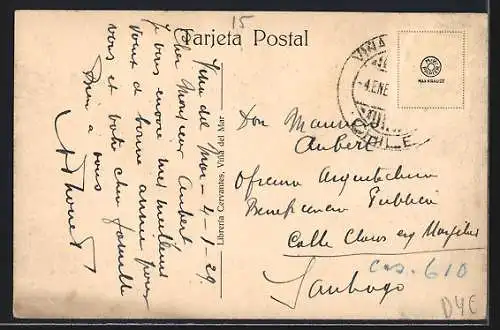 15
Tarjeta Postal
Viña del Mar - 4-1-29.
Cher Monsieur Aubert
Je vous envoie mes meilleurs
voeux de bonne année pour
vous et votre chère famille
Bien à vous
Librería Cervantes, Viña del Mar
VIÑA
4 ENE
CHILE
Don Maurice
Aubert
Oficina Arquitectura
Beneficencia Publica
Calle Claras esq
Cas. 610
Santiago
D4E